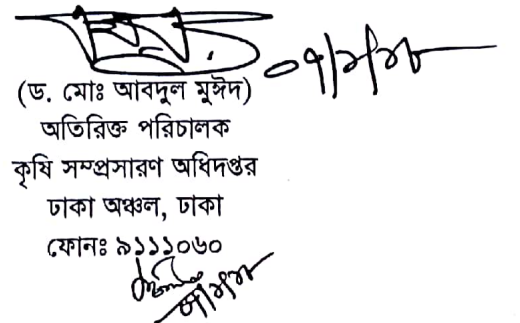 (ড. মোঃ আবদুল মুঈদ)
অতিরিক্ত পরিচালক
কৃষি সম্প্রসারণ অধিদপ্তর
ঢাকা অঞ্চল, ঢাকা
ফোনঃ ৯১১১০৬০